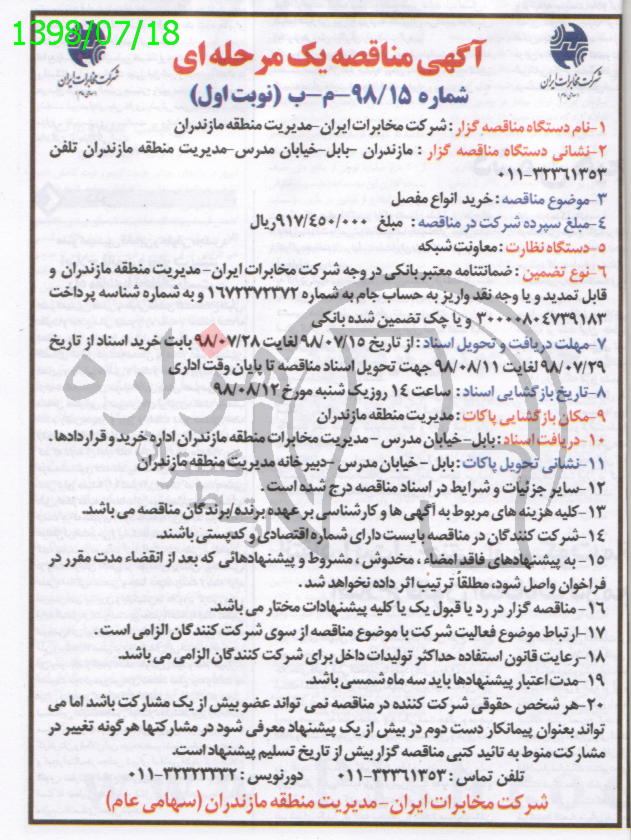 1398/07/18
آگهی مناقصه یک مرحله ای
شماره ۹۸/۱۵-م-ب (نوبت اول)
شرکت مخابرات ایران
شرکت مخابرات ایران
۱-نام دستگاه مناقصه گزار : شرکت مخابرات ایران-مدیریت منطقه مازندران
۲-نشانی دستگاه مناقصه گزار : مازندران -بابل-خیابان مدرس-مدیریت منطقه مازندران تلفن
۰۱۱-۳۲۳۶۱۳۵۳
۳-موضوع مناقصه : خرید انواع مفصل
۴-مبلغ سپرده شرکت در مناقصه : مبلغ ۹۱۷/۴۵۰/۰۰۰ریال
۵-دستگاه نظارت : معاونت شبکه
۶-نوع تضمین : ضمانتنامه معتبر بانکی در وجه شرکت مخابرات ایران-مدیریت منطقه مازندران و
قابل تمدید و یا وجه نقد واریز به حساب جام به شماره ۱۶۷۲۳۷۲۳۷۲ و به شماره شناسه پرداخت
۳۰۰۰۰۸۰۴۷۳۹۱۸۳ و یا چک تضمین شده بانکی
۷-مهلت دریافت و تحویل اسناد : از تاریخ ۹۸/۰۷/۱۵ لغایت ۹۸/۰۷/۲۸ بابت خرید اسناد از تاریخ
۹۸/۰۷/۲۹ لغایت ۹۸/۰۸/۱۱ جهت تحویل اسناد مناقصه تا پایان وقت اداری
۸-تاریخ بازگشایی اسناد : ساعت ۱۴ روز یک شنبه مورخ ۹۸/۰۸/۱۲
۹-مکان بازگشایی پاکات : مدیریت منطقه مازندران
۱۰- دریافت اسناد : بابل-خیابان مدرس - مدیریت مخابرات منطقه مازندران اداره خرید و قراردادها.
۱۱-نشانی تحویل پاکات : بابل - خیابان مدرس -دبیرخانه مدیریت منطقه مازندران
۱۲-سایر جزئیات و شرایط در اسناد مناقصه درج شده است.
۱۳-کلیه هزینه های مربوط به آگهی ها و کارشناسی بر عهده برنده/برندگان مناقصه می باشد.
۱۴-شرکت کنندگان در مناقصه بایست دارای شماره اقتصادی و کدپستی باشند.
۱۵-به پیشنهادهای فاقد امضاء ، مخدوش ، مشروط و پیشنهادهائی که بعد از انقضاء مدت مقرر در
فراخوان واصل شود، مطلقاً ترتیب اثر داده نخواهد شد .
۱۶-مناقصه گزار در رد یا قبول یک یا کلیه پیشنهادات مختار می باشد.
۱۷-ارتباط موضوع فعالیت شرکت با موضوع مناقصه از سوی شرکت کنندگان الزامی است .
۱۸-رعایت قانون استفاده حداکثر تولیدات داخل برای شرکت کنندگان الزامی می باشد.
۱۹-مدت اعتبار پیشنهادها باید سه ماه شمسی باشد.
۲۰-هر شخص حقوقی شرکت کننده در مناقصه نمی تواند عضو بیش از یک مشارکت باشد اما می
تواند بعنوان پیمانکار دست دوم در بیش از یک پیشنهاد معرفی شود در مشارکتها هرگونه تغییر در
مشارکت منوط به تائید کتبی مناقصه گزار بیش از تاریخ تسلیم پیشنهاد است.
تلفن تماس : ۳۲۳۶۱۳۵۳-۰۱۱ دورنویس : ۳۲۲۲۲۲۳۲-۰۱۱
شرکت مخابرات ایران-مدیریت منطقه مازندران (سهامی عام)
هزاره